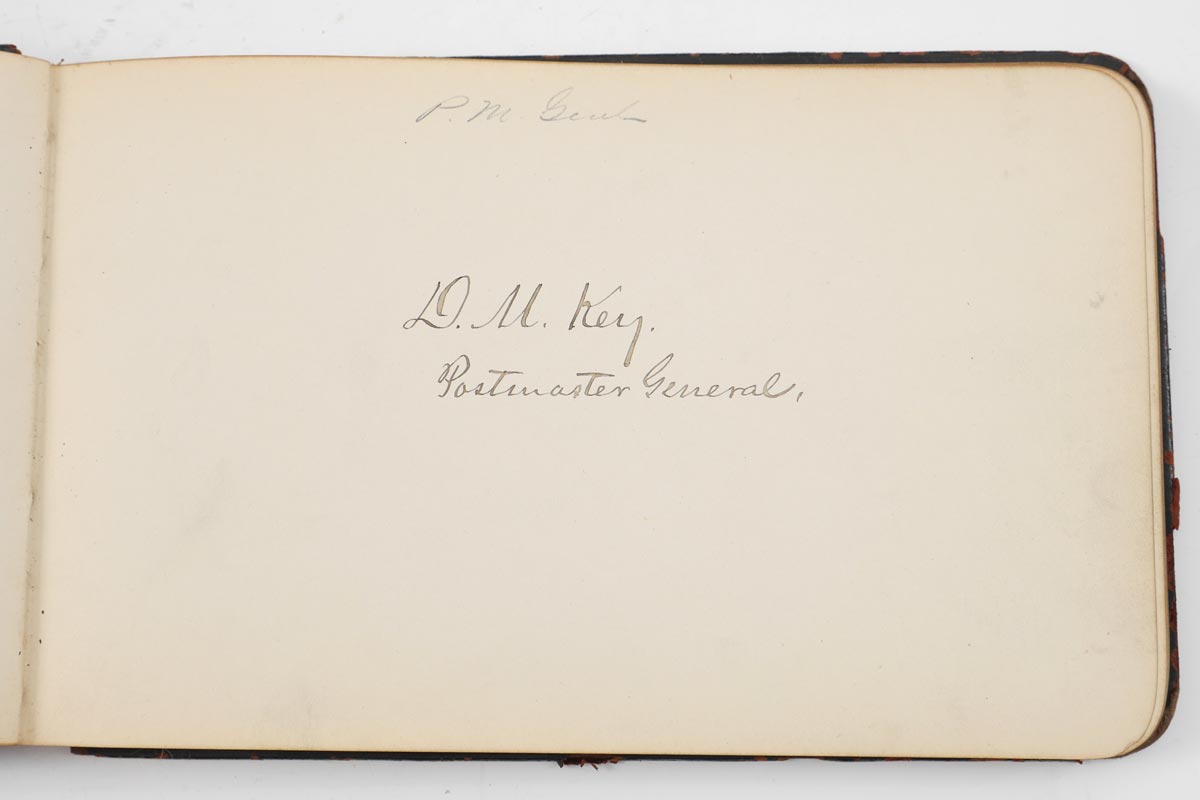 P. M. Genl
D. M. Key.
Postmaster General.